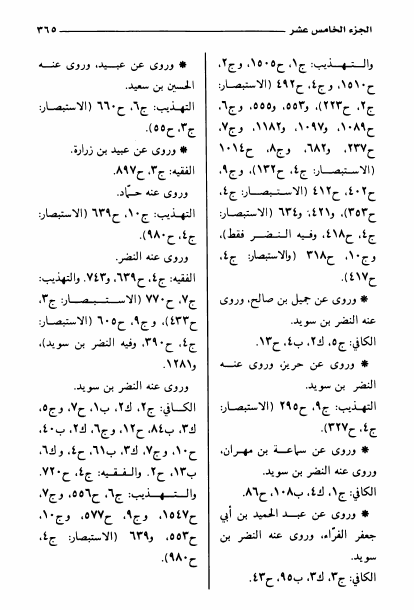 الجزء الخامس عشر ٣٦٥
والتـهـذيب: ج١، ح١٥٠٥، وج٢،
ح١٥١٠، وج٤، ح٤٩٢ (الاستبصار:
ج٢، ح٢٢٣)، و٥٥٣، و٥٥٥، وج٦،
ح١٠٨٩، و١٠٩٧، و١١٨٢، وج٧،
ح٢٣٧، و٦٨٢، وج٨، ح١٠١٤
(الاستبصار: ج٤، ح١٣٢)، وج٩،
ح٤٠٢، ح٤١٢ (الاستبصار: ج٤،
ح٣٥٣)، و٤٢١، و٦٣٤ (الاستبصار:
ج٤، ح٤١٨، وفيه النضر فقط)،
وج١٠، ح٣١٨ (والاستبصار: ج٤،
ح٤١٧).
* وروى عن جميل بن صالح، وروى
عنه النضر بن سويد.
الكافي: ج٥، ك٢، ب٤، ح١٣.
* وروى عن حريز، وروى عنه
النضر بن سويد.
التهذيب: ج٩، ح٢٩٥ (الاستبصار:
ج٤، ح٣٢٧).
* وروى عن سماعة بن مهران،
وروى عنه النضر بن سويد.
الكافي: ج١، ك٤، ب١٠٨، ح٨٦.
* وروى عن عبد الحميد بن أبي
جعفر الفرّاء، وروى عنه النضر بن
سويد.
الكافي: ج٣، ك٣، ب٩٥، ح٤٣.
* وروى عن عبيد، وروى عنه
الحسين بن سعيد.
التهذيب: ج٦، ح٦٦٠ (الاستبصار:
ج٣، ح٥٥).
* وروى عن عبيد بن زرارة.
الفقيه: ج٣، ح٨٩٧.
وروى عنه حمّاد.
التهذيب: ج١٠، ح٦٣٩ (الاستبصار:
ج٤، ح٩٨٠).
وروى عنه النضر.
الفقيه: ج٤، ح٦٣٩، و٧٤٣. والتهذيب:
ج٧، ح٧٧٠ (الاستـبـصار: ج٣،
ح٤٣٣)، وج٩، ح٦٠٥ (الاستبصار:
ج٤، ح٣٩٠، وفيه النضر بن سويد)،
و١٢٨١.
وروى عنه النضر بن سويد.
الكـافي: ج٢، ك٢، ب١، ح٧، وج٥،
ك٣، ب٨٤، ح١٢، وج٦، ك٢، ب٤٠،
ح١٠، وج٧، ك٣، ب٦١، ح٤، وك٦،
ب١٣، ح٢. والـفـقيه: ج٤، ح٧٢٠.
والـتـهـذيب: ج٦، ح٥٥٦، وج٧،
ح١٥٤٧، وج٩، ح٥٧٧، وج١٠،
ح٥٥٣، و٦٣٩ (الاستبصار: ج٤،
ح٩٨٠).